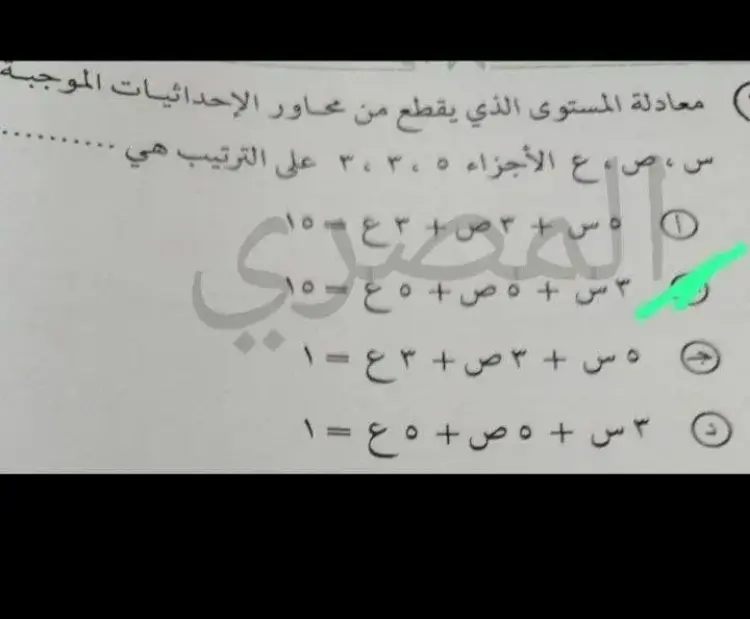 معادلة المستوى الذي يقطع من محاور الإحداثيات الموجبة
س ، ص ، ع الأجزاء ٥ ، ٣ ، ٣ على الترتيب هي ............
أ ٥ س + ٣ ص + ٣ ع = ١٥
٣ س + ٥ ص + ٥ ع = ١٥
ج ٥ س + ٣ ص + ٣ ع = ١
د ٣ س + ٥ ص + ٥ ع = ١
المصري